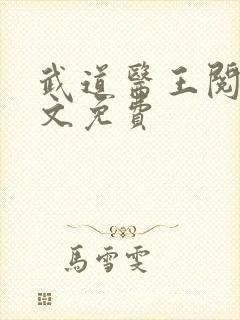 武道醫王閱
文免費
馬雪雯